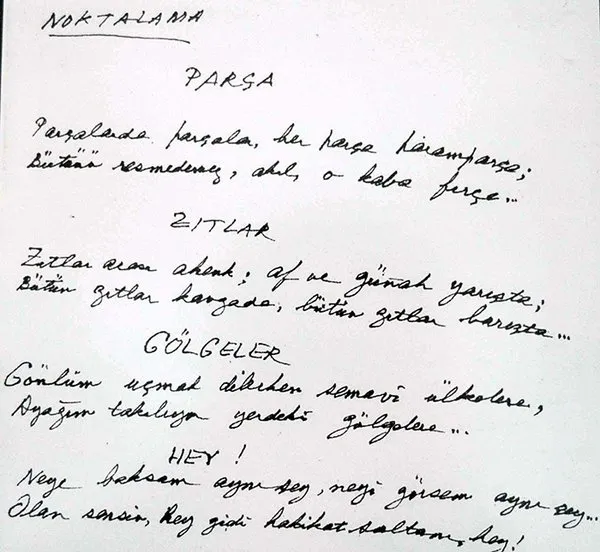 NOKTALAMA
PARÇA
Parçalarda parçalar, her parça paramparça;
Bütünü resmedemez, akıl, o kaba fırça...
ZITLAR
Zıtlar arası ahenk; af ve günah yarışta;
Bütün zıtlar kavgada, bütün zıtlar barışta...
GÖLGELER
Gönlüm uçmak dilerken semavi ülkelere,
Ayağım takılıyor yerdeki gölgelere...
HEY!
Neye baksam aynı şey, neyi görsem aynı şey...
Olan sensin, hey gidi hakikat saltanı, hey!